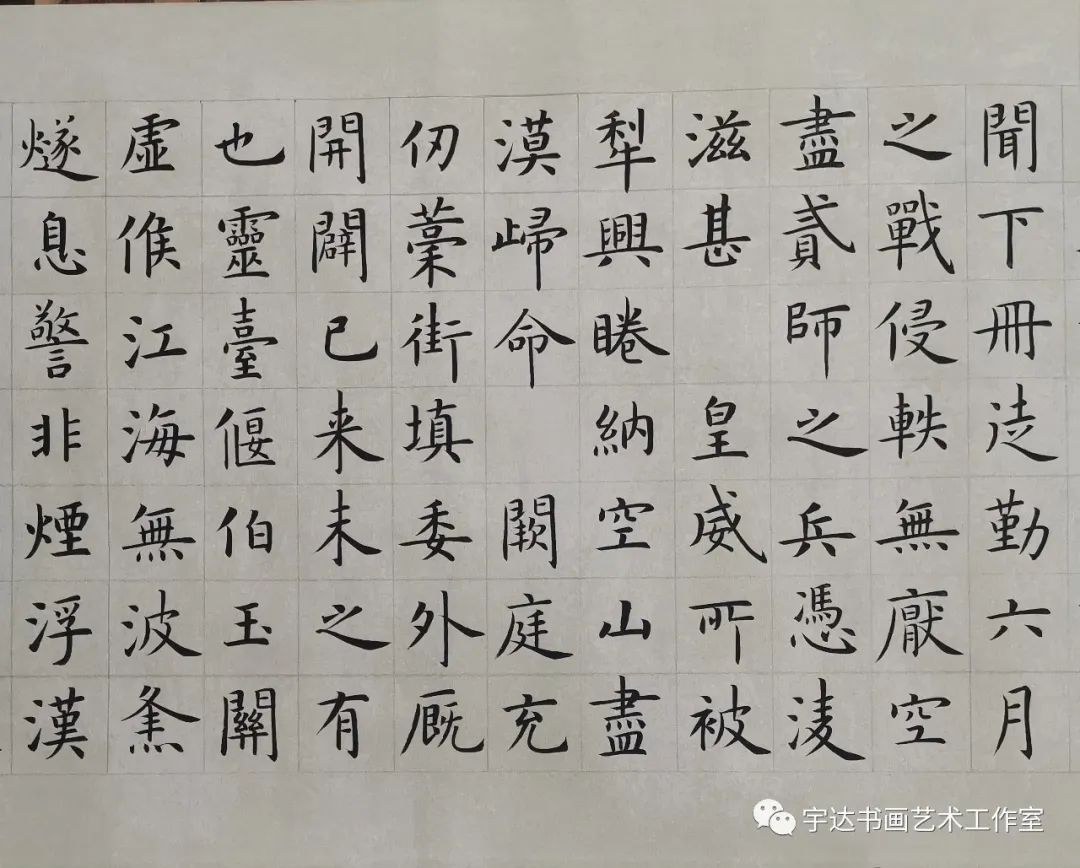 聞下冊徒勤六月
之戰侵軼無厭空
盡貳師之兵憑凌
滋甚 皇威所被
犁興睠納空山盡
漠歸命 闕庭充
仞藁街填委外厩
開闢已来未之有
也靈臺偃伯玉關
虛候江海無波㷟
燧息警非煙浮漢
宇达书画艺术工作室